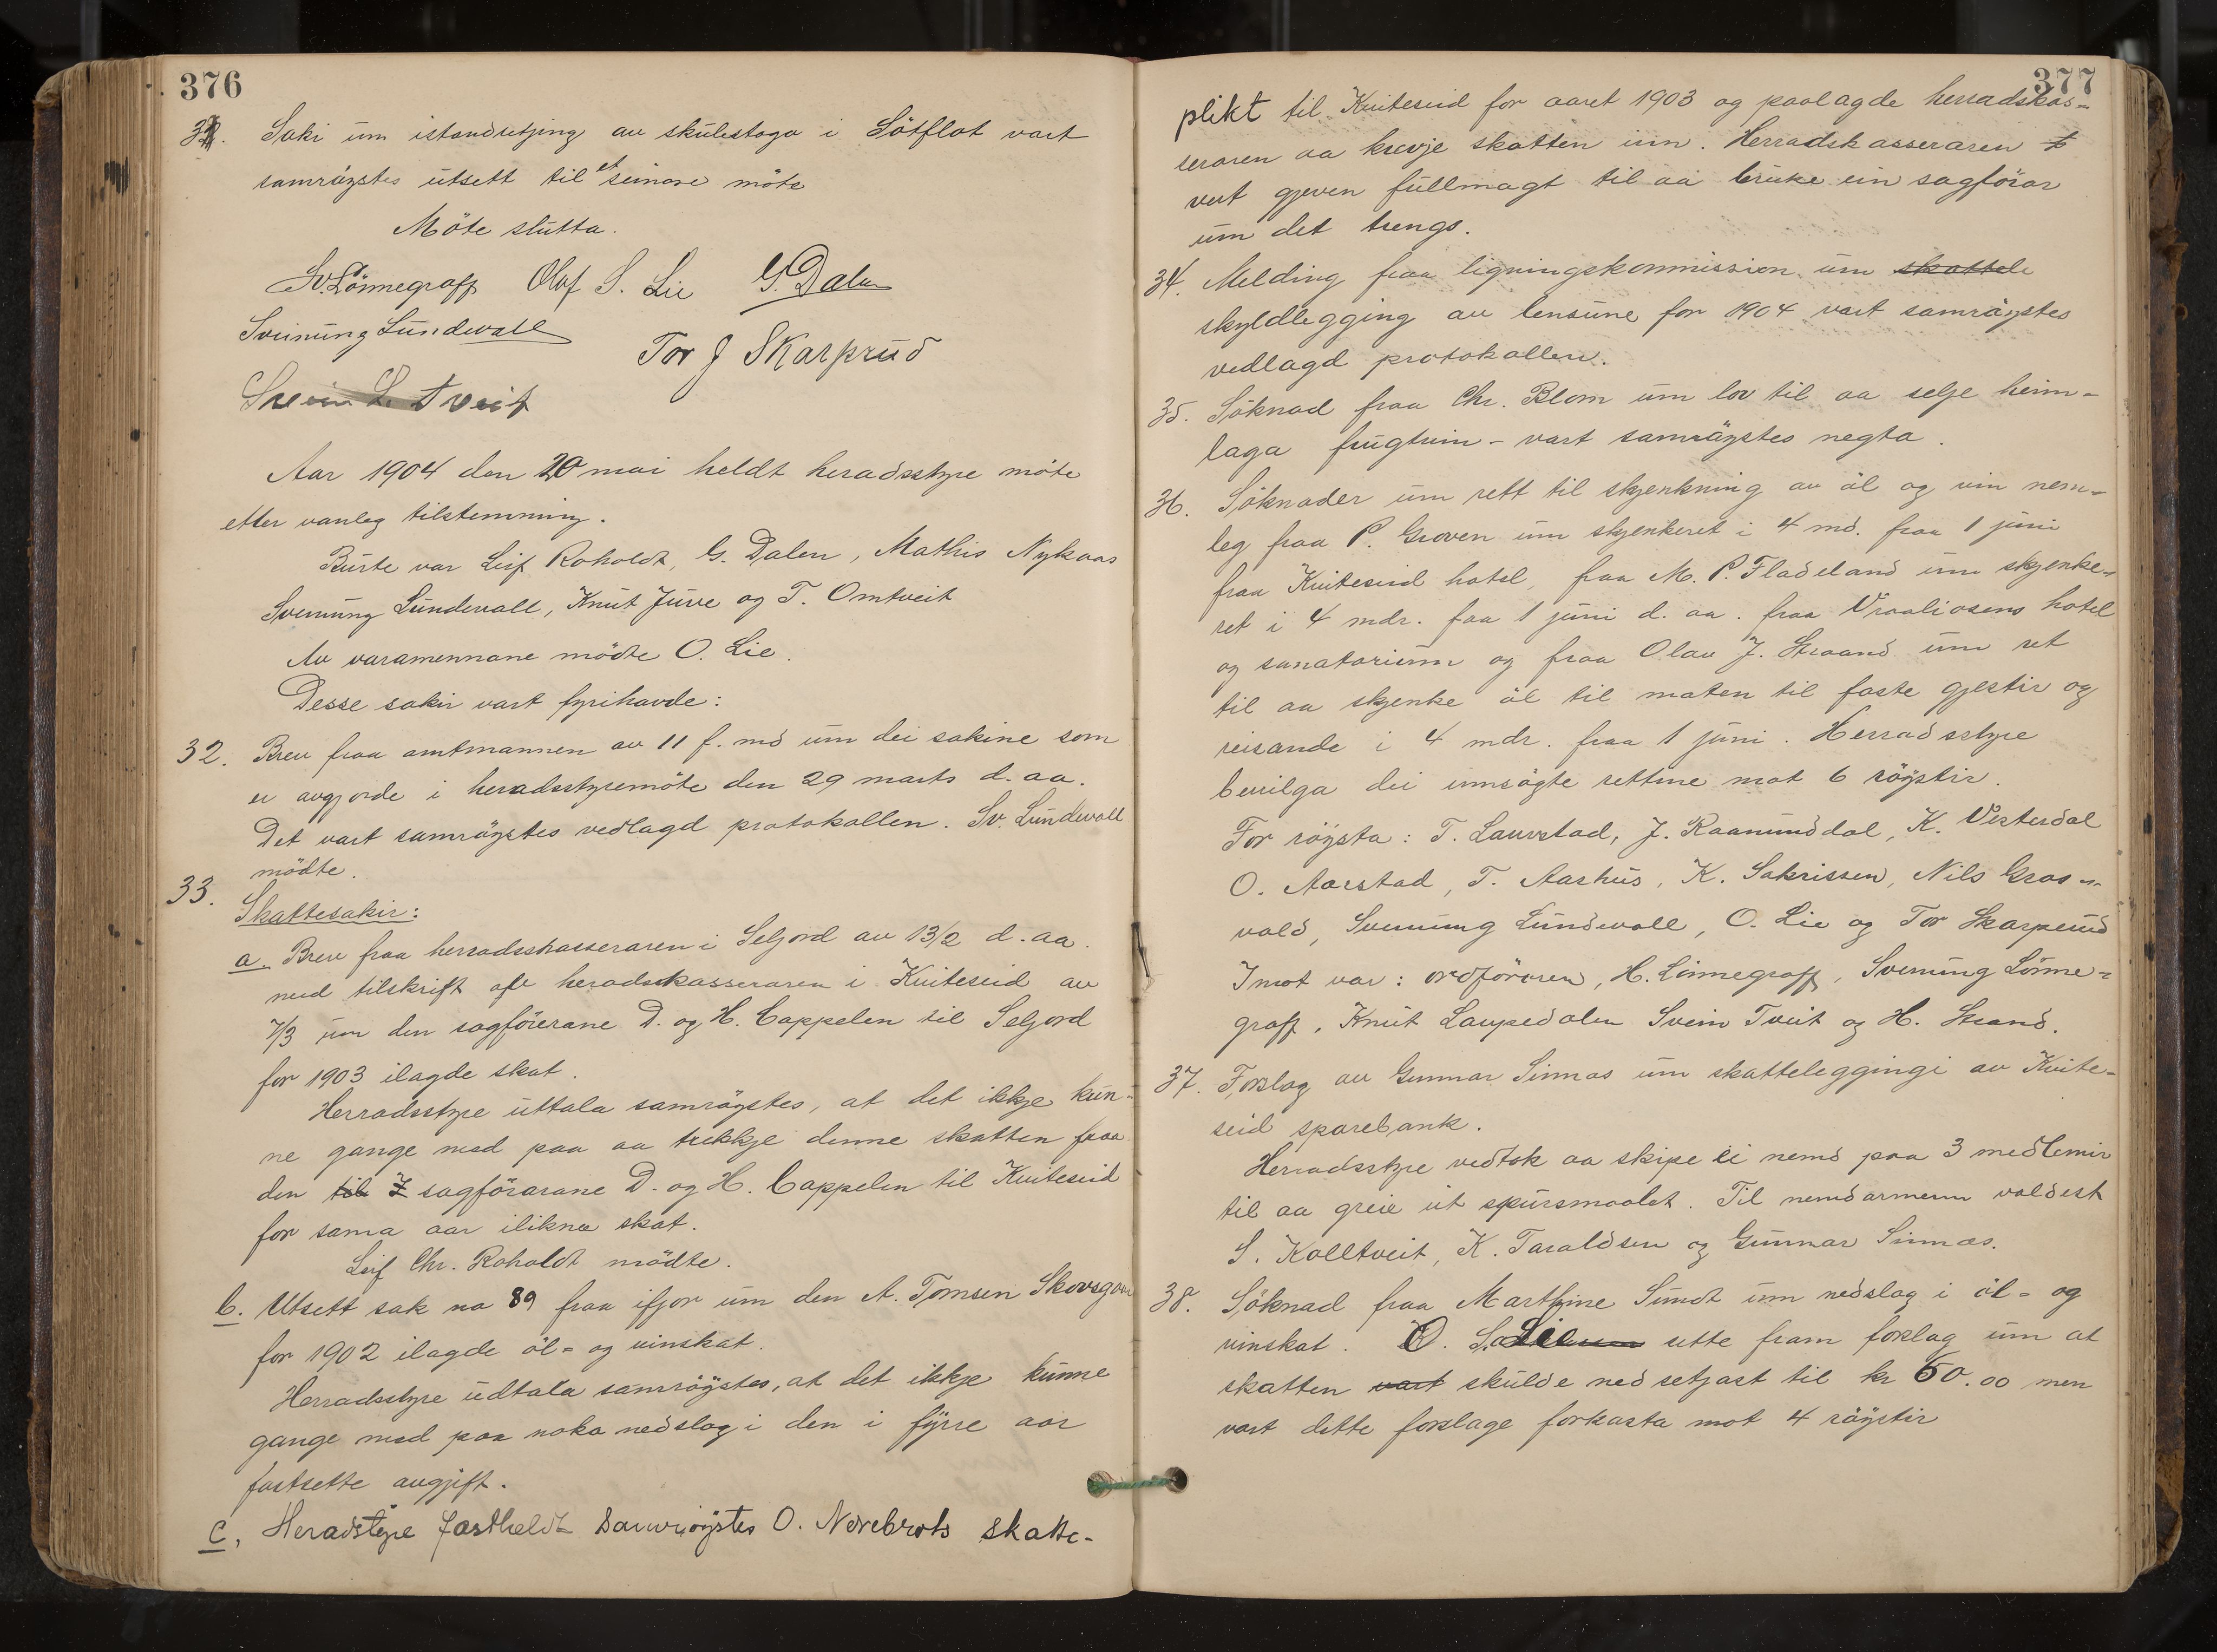 376
31. Saki um istandsetjing av skulestoga i Lötflot vart
samröystes utsett til et seinare möte
Möte slutta.
Sv. Lönnegraff Olaf S. Lie G. Dalen
Sveinung Lundevall Tor J Skarprud
Svein L. Tveit
Aar 1904 den 20 mai heldt heradsstyre möte
etter vanleg tilstemming.
Burte var Leif Roholdt, G. Dalen, Mathis Nykaas
Svenung Lundevall, Knut Juve og T. Omtveit
Av varamennane mödte O. Lie.
Desse sakir vart fyrihavde:
32. Brev fraa amtmannen av 11 f. md um dei sakine som
er avgjorde i heradsstyremöte den 29 marts d. aa.
Det vart samröystes vedlagd protokollen. Sv. Lundevall
mödte.
33. Skattesakir:
a. Brev fraa herradskasseraren i Seljord av 13/2 d. aa.
med tilskrift av heradskasseraren i Kviteseid av
7/3 um den sagförerane D. og H. Cappelen til Seljord
for 1903 ilagde skat.
Herradsstyre uttala samröystes, at det ikkje kun-
ne gange med paa aa trekkje denne skatten fraa
den til sagförarane D. og H. Cappelen til Kviteseid
for sama aar ilikna skat.
Leif Chr. Roholdt mödte.
b. Utsett sak no 89 fraa ifjor um den A. Tomsen Skovsgaard
for 1902 ilagde öl- og vinskat.
Herradsstyre udtala samröystes, at det ikkje kunne
gange med paa noko nedslag i den i fyrre aar
fastsette avgjift.
c, Heradstyre fastheldt samröystes O. Nerebrots skatte-
377
plikt til Kviteseid for aaret 1903 og paalagde herradskas-
seraren aa krevje skatten inn. Herradskasseraren
vert gjeven fullmagt til aa bruke ein sagförar
um det trengs.
34. Melding fraa ligningskommission um skattele
skyldlegging av lensune for 1904 vart samröystes
vedlagd protokollen.
35. Söknad fraa Chr. Blom um lov til aa selje heim-
laga frugtvin - vart samröystes negta.
36. Söknader um rett til skjenkning av öl og vin nem-
leg fraa P. Groven um skjenkeret i 4 md. fraa 1 juni
fraa Kviteseid hotel, fraa M. P. Fladeland um skjenke-
ret i 4 mdr. faa 1 juni d. aa. fraa Vraaliosens hotel
og sanatorium og fraa Olav J. Straand um ret
til aa skjenke öl til maten til faste gjestir og
reisande i 4 mdr. fraa 1 juni. Herradsstyre
bevilga dei umsögte rettine mot 6 röystir.
For röysta: T. Lauvstad, J. Raamunddal, K. Vesterdal
O. Aarstad, T. Aarhus, K. Sakrissen, Nils Gras-
vold, Svenung Lundevall, O. Lie og Tor Skarperud
Imot var: ordföraren, H. Lönnegraff, Svenung Lönne-
graff, Knut Laupedalen Svein Tveit og H. Strand.
37. Forslag av Gunnar Sinnas um skatteleggingi av Kvite-
seid sparebank.
Herradsstyre vedtok aa skipe ei nemd paa 3 medlemir
til aa greie ut spursmaalet. Til nemdarmenn valdest
S. Kolltveit, K. Taraldsen og Gunnar Sinnas.
38. Söknad fraa Marthine Sundt um nedslag i öl- og
vinskat. O. Lie sette fram forslag um at
skatten vart skulde nedsetjast til kr 50.00 men
vart dette forslage forkasta mot 4 röystir